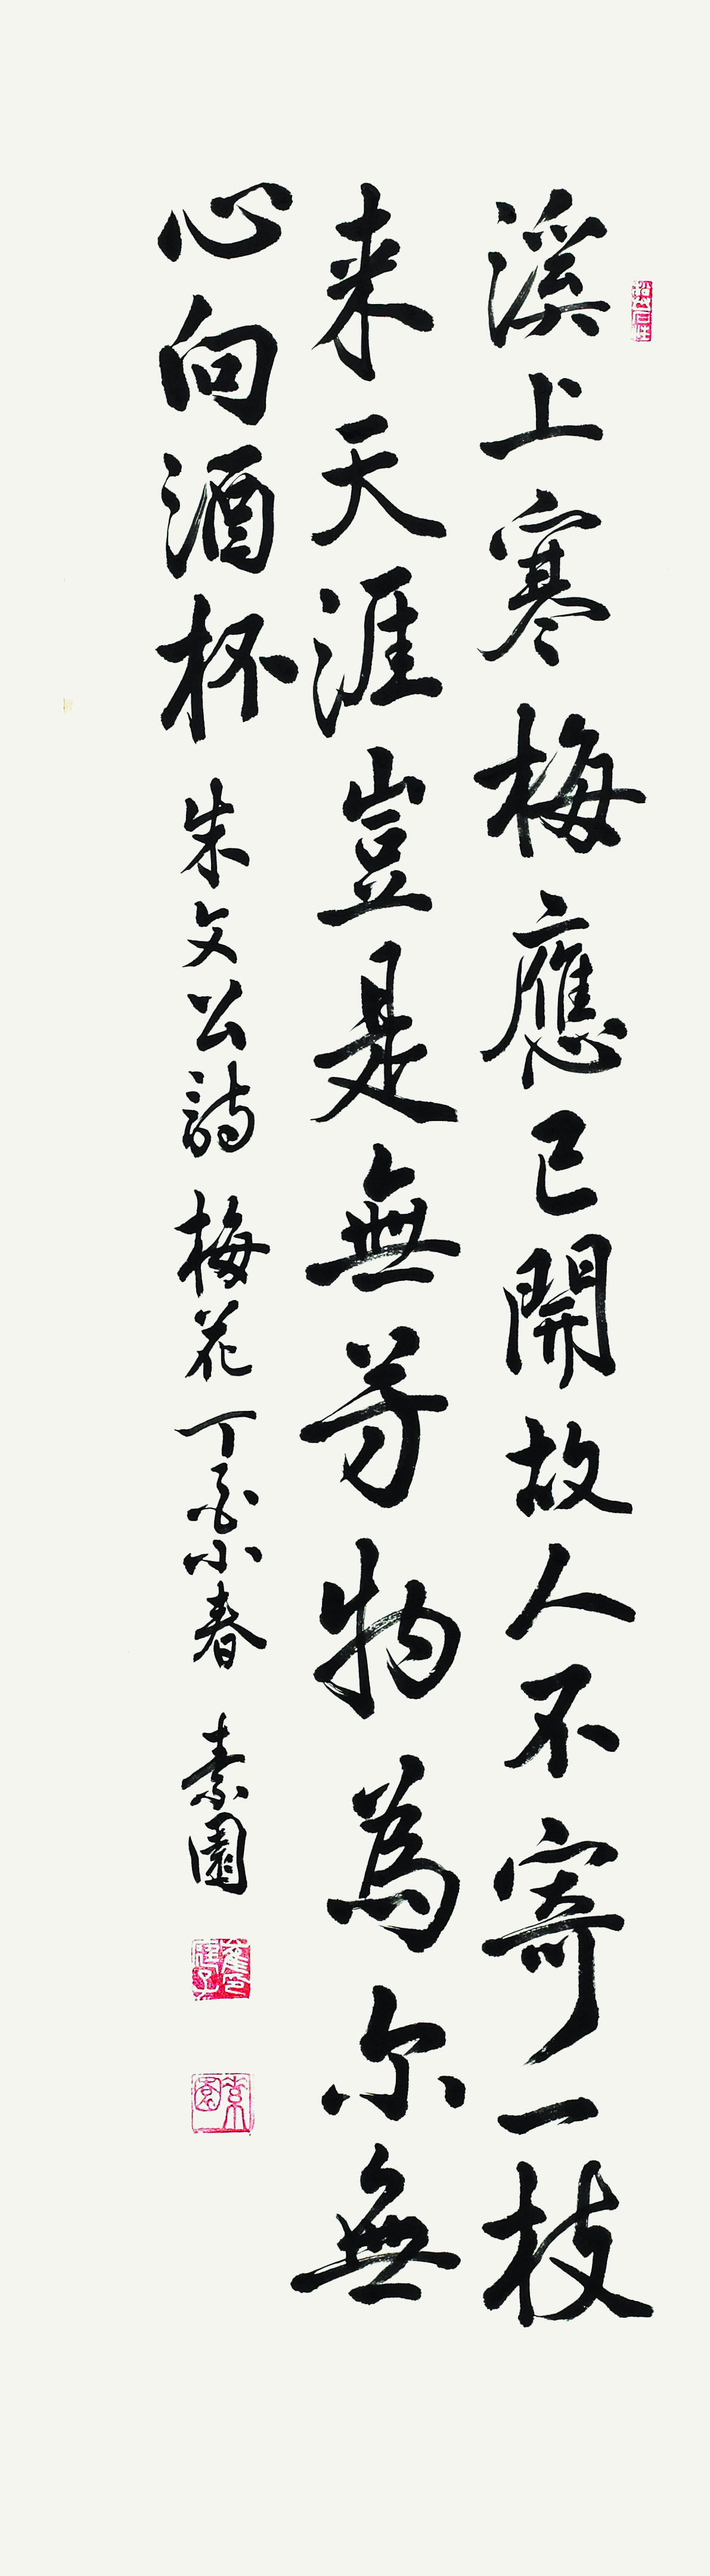 溪上寒梅應已開故人不寄一枝
来天涯豈是無芳物為尔無
心向酒杯 朱文公詩 梅花 丁酉小春 素園
素園